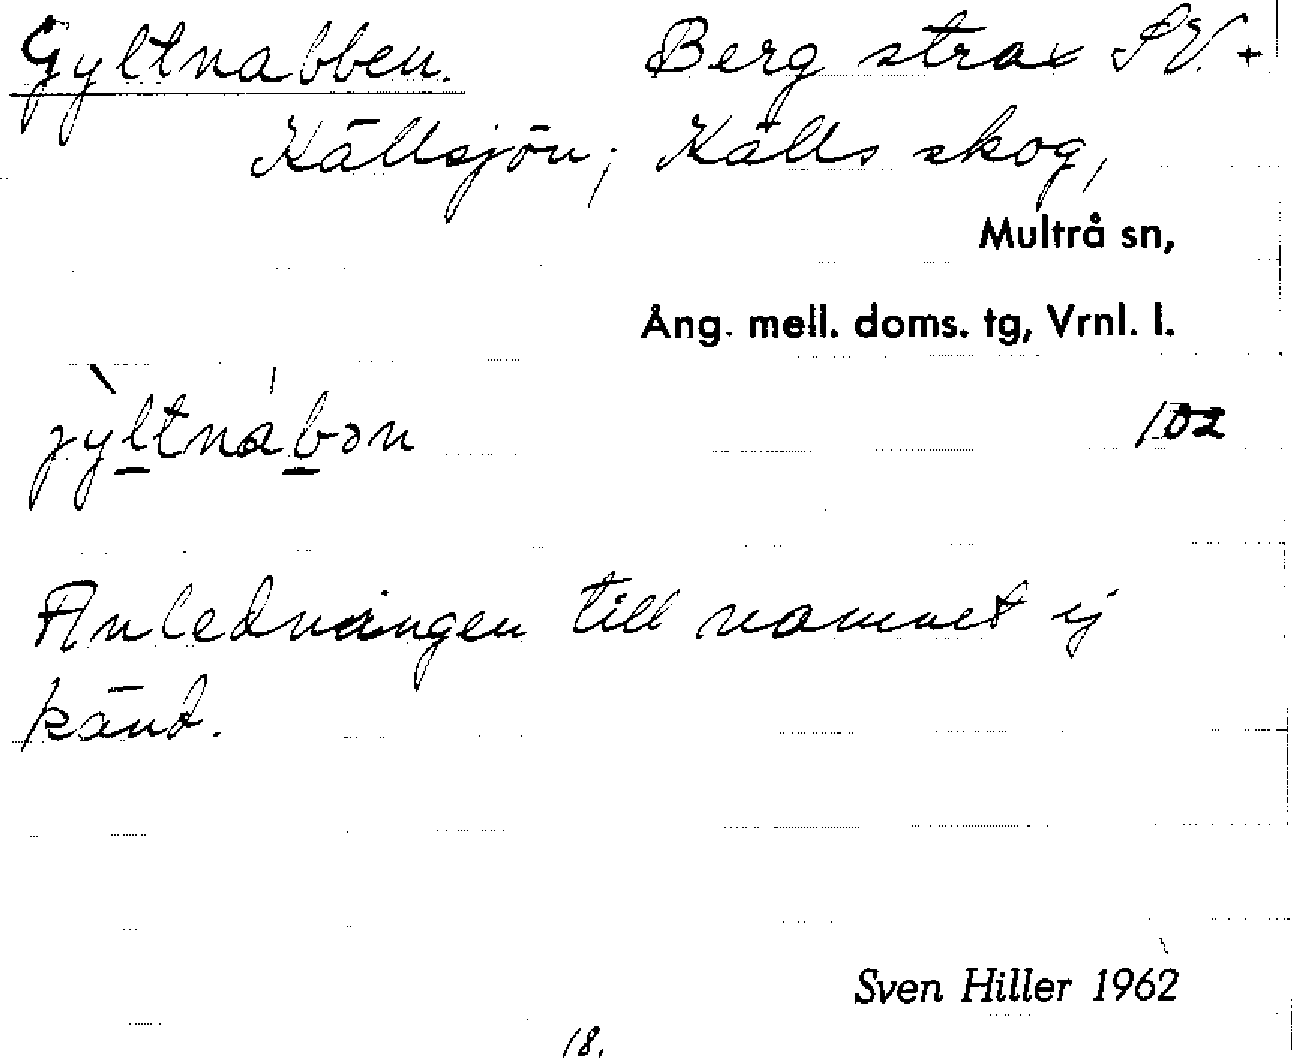 Gyltnabben. Berg strax SV. +
Källsjön; Källs skog,
Multrå sn,
Ång. mell. doms. tg, Vrnl. l.
jỳltnábən 102
Anledningen till namnet ej
känd.
Sven Hiller 1962
18.